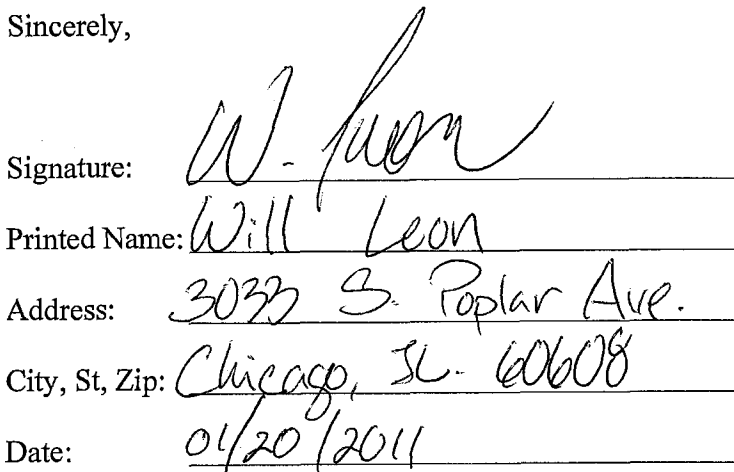 Sincerely,
Signature: W. Leon
Printed Name: Will Leon
Address: 3033 S. Poplar Ave.
City, St, Zip: Chicago, IL. 60608
Date: 01/20/2011